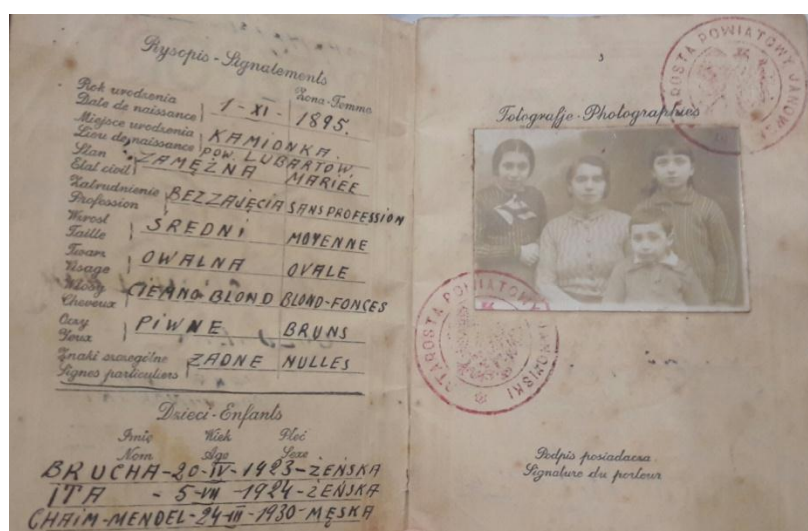 Rysopis - Signalements
Rok urodzenia
Date de naissance
Żona-Femme
1-XI- 1895.
Miejsce urodzenia
Lieu de naissance
KAMIONKA.
POW. LUBARTÓW
Stan
Etat civil
ZAMĘŻNA MARIEE
Zatrudnienie
Profession
BEZ ZAJĘCIA SANS PROFESSION
Wzrost
Taille
ŚREDNI MOYENNE
Twarz
Visage
OWALNA OVALE
Włosy
Cheveux
CIEMNO BLOND BLOND-FONCES
Oczy
Yeux
PIWNE BRUNS
Znaki szczególne
Signes particuliers
ŻADNE NULLES
Dzieci - Enfants
Imię Wiek Płeć
Nom Age Sexe
BRUCHA-20-IV-1923-ŻEŃSKA
ITA - 5-VII-1924-ŻEŃSKA
CHAIM-MENDEL-24-III-1930-MĘSKA
3
Fotografje - Photographies
STAROSTA POWIATOWY JANOWSKI
STAROSTA POWIATOWY JANOWSKI
Podpis posiadacza
Signature du porteur